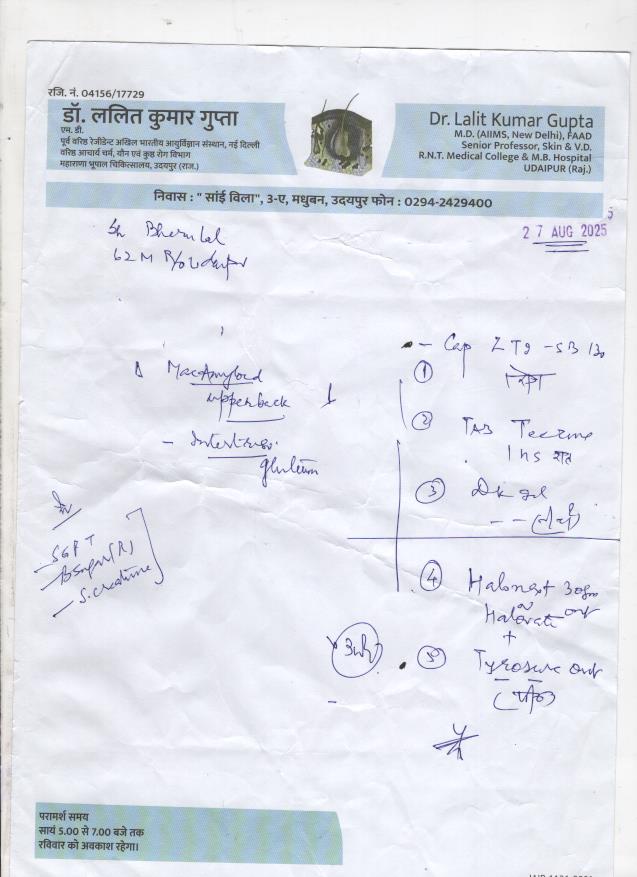 रजि. नं. 04156/17729
डॉ. ललित कुमार गुप्ता
एम. डी.
पूर्व वरिष्ठ रेजीडेन्ट अखिल भारतीय आयुर्विज्ञान संस्थान, नई दिल्ली
वरिष्ठ आचार्य चर्म, यौन एवं कुष्ठ रोग विभाग
महाराणा भूपाल चिकित्सालय, उदयपुर (राज.)
Dr. Lalit Kumar Gupta
M.D. (AIIMS, New Delhi), FAAD
Senior Professor, Skin & V.D.
R.N.T. Medical College & M.B. Hospital
UDAIPUR (Raj.)
निवास : " सांई विला", 3-ए, मधुबन, उदयपुर फोन : 0294-2429400
27 AUG 2025
Sh Bherulal
62 M R/o Udaipur
Macamyloid
upperback
- Intertrigo
gluteum
SGPT
B Sugar (R)
S. creatinine
- Cap
①
② TAB
1 hs रात
③ gel
- -
④ Halonext 30gm
or
+
⑤ Tyrosure oint
परामर्श समय
सायं 5.00 से 7.00 बजे तक
रविवार को अवकाश रहेगा।